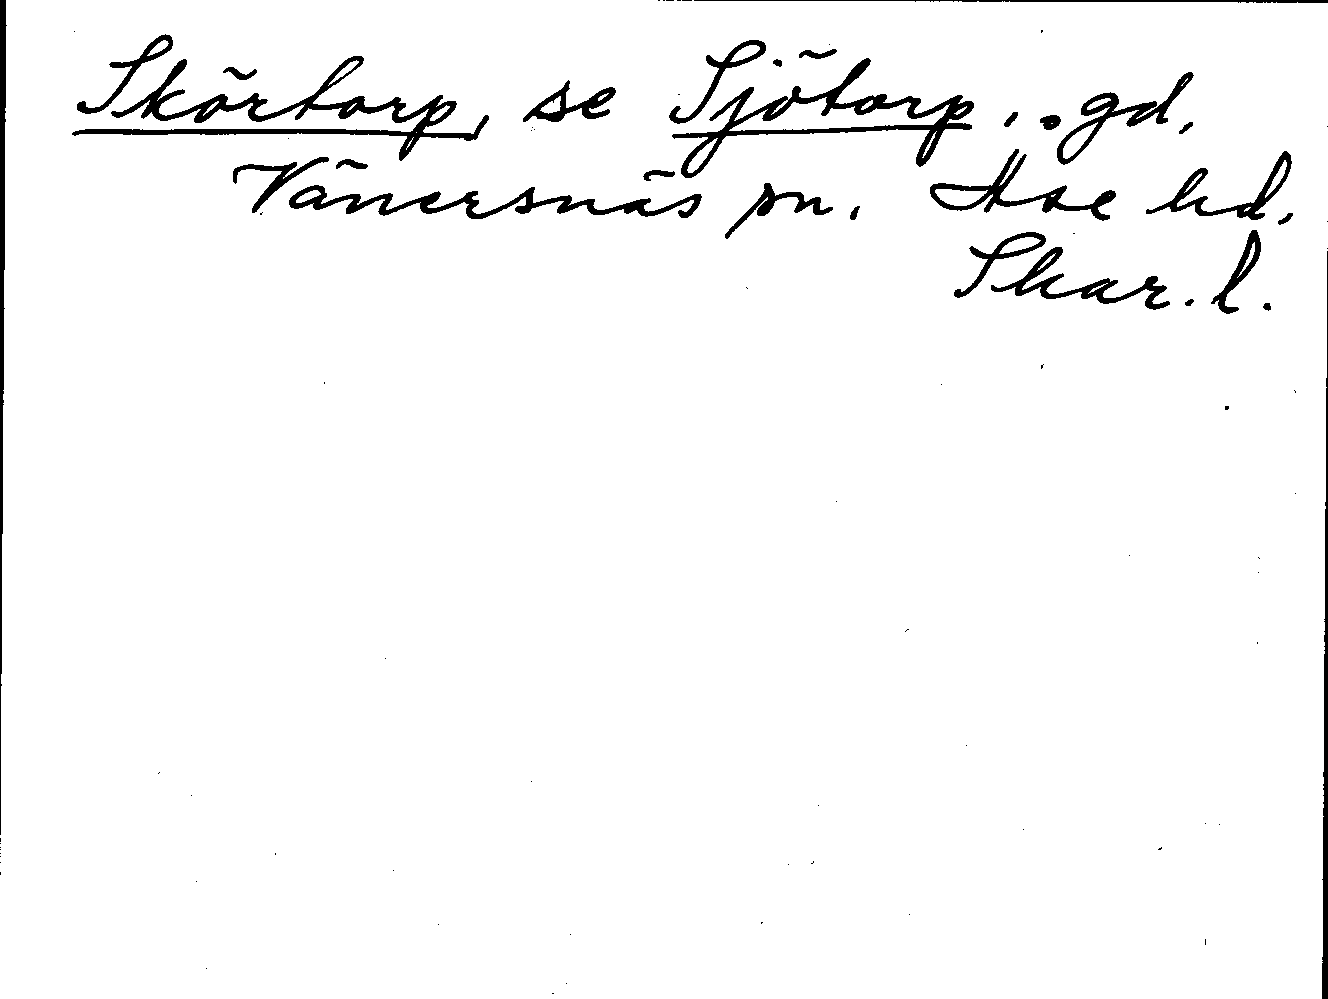 Skörtorp, se Sjötorp, gd,
Vänersnäs sn, Åse hd,
Skar. l.